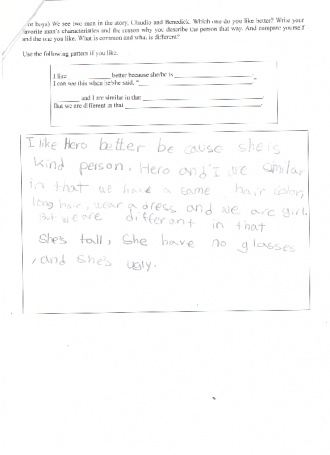 (for boys) We see two men in the story, Claudio and Benedick. Which one do you like better? Write your
favorite man's characteristics and the reason why you describe the person that way. And compare yourself
and the one you like. What is common and what is different?
Use the following pattern if you like.
I like ________ better because she/he is ________.
I can see this when he/she said, "________"
________ and I are similar in that ________.
But we are different in that ________.
I like Hero better be cause she is
kind person. Hero and I are similar
in that we have a same hair color,
long hair, wear a dress and we are girl.
But we are different in that
She's tall, She have no glasses
, and she's ugly.